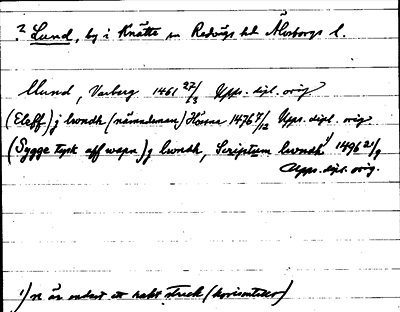 ? Lund, by i Knätte sn Redvägs hd Älvsborgs l.
Mund, Varberg 1461 27/3 Upps. dipl. orig
(Eleff) j lwndh (nämndeman) Hössna 1476 7/12 Upps. dipl. orig
(Sygge tysk aff wapn) j lwndh, Scriptum lwndh 1) 1496 21/9
Upps. dipl. orig.
1) n är endast ett rakt streck (horisontellt)